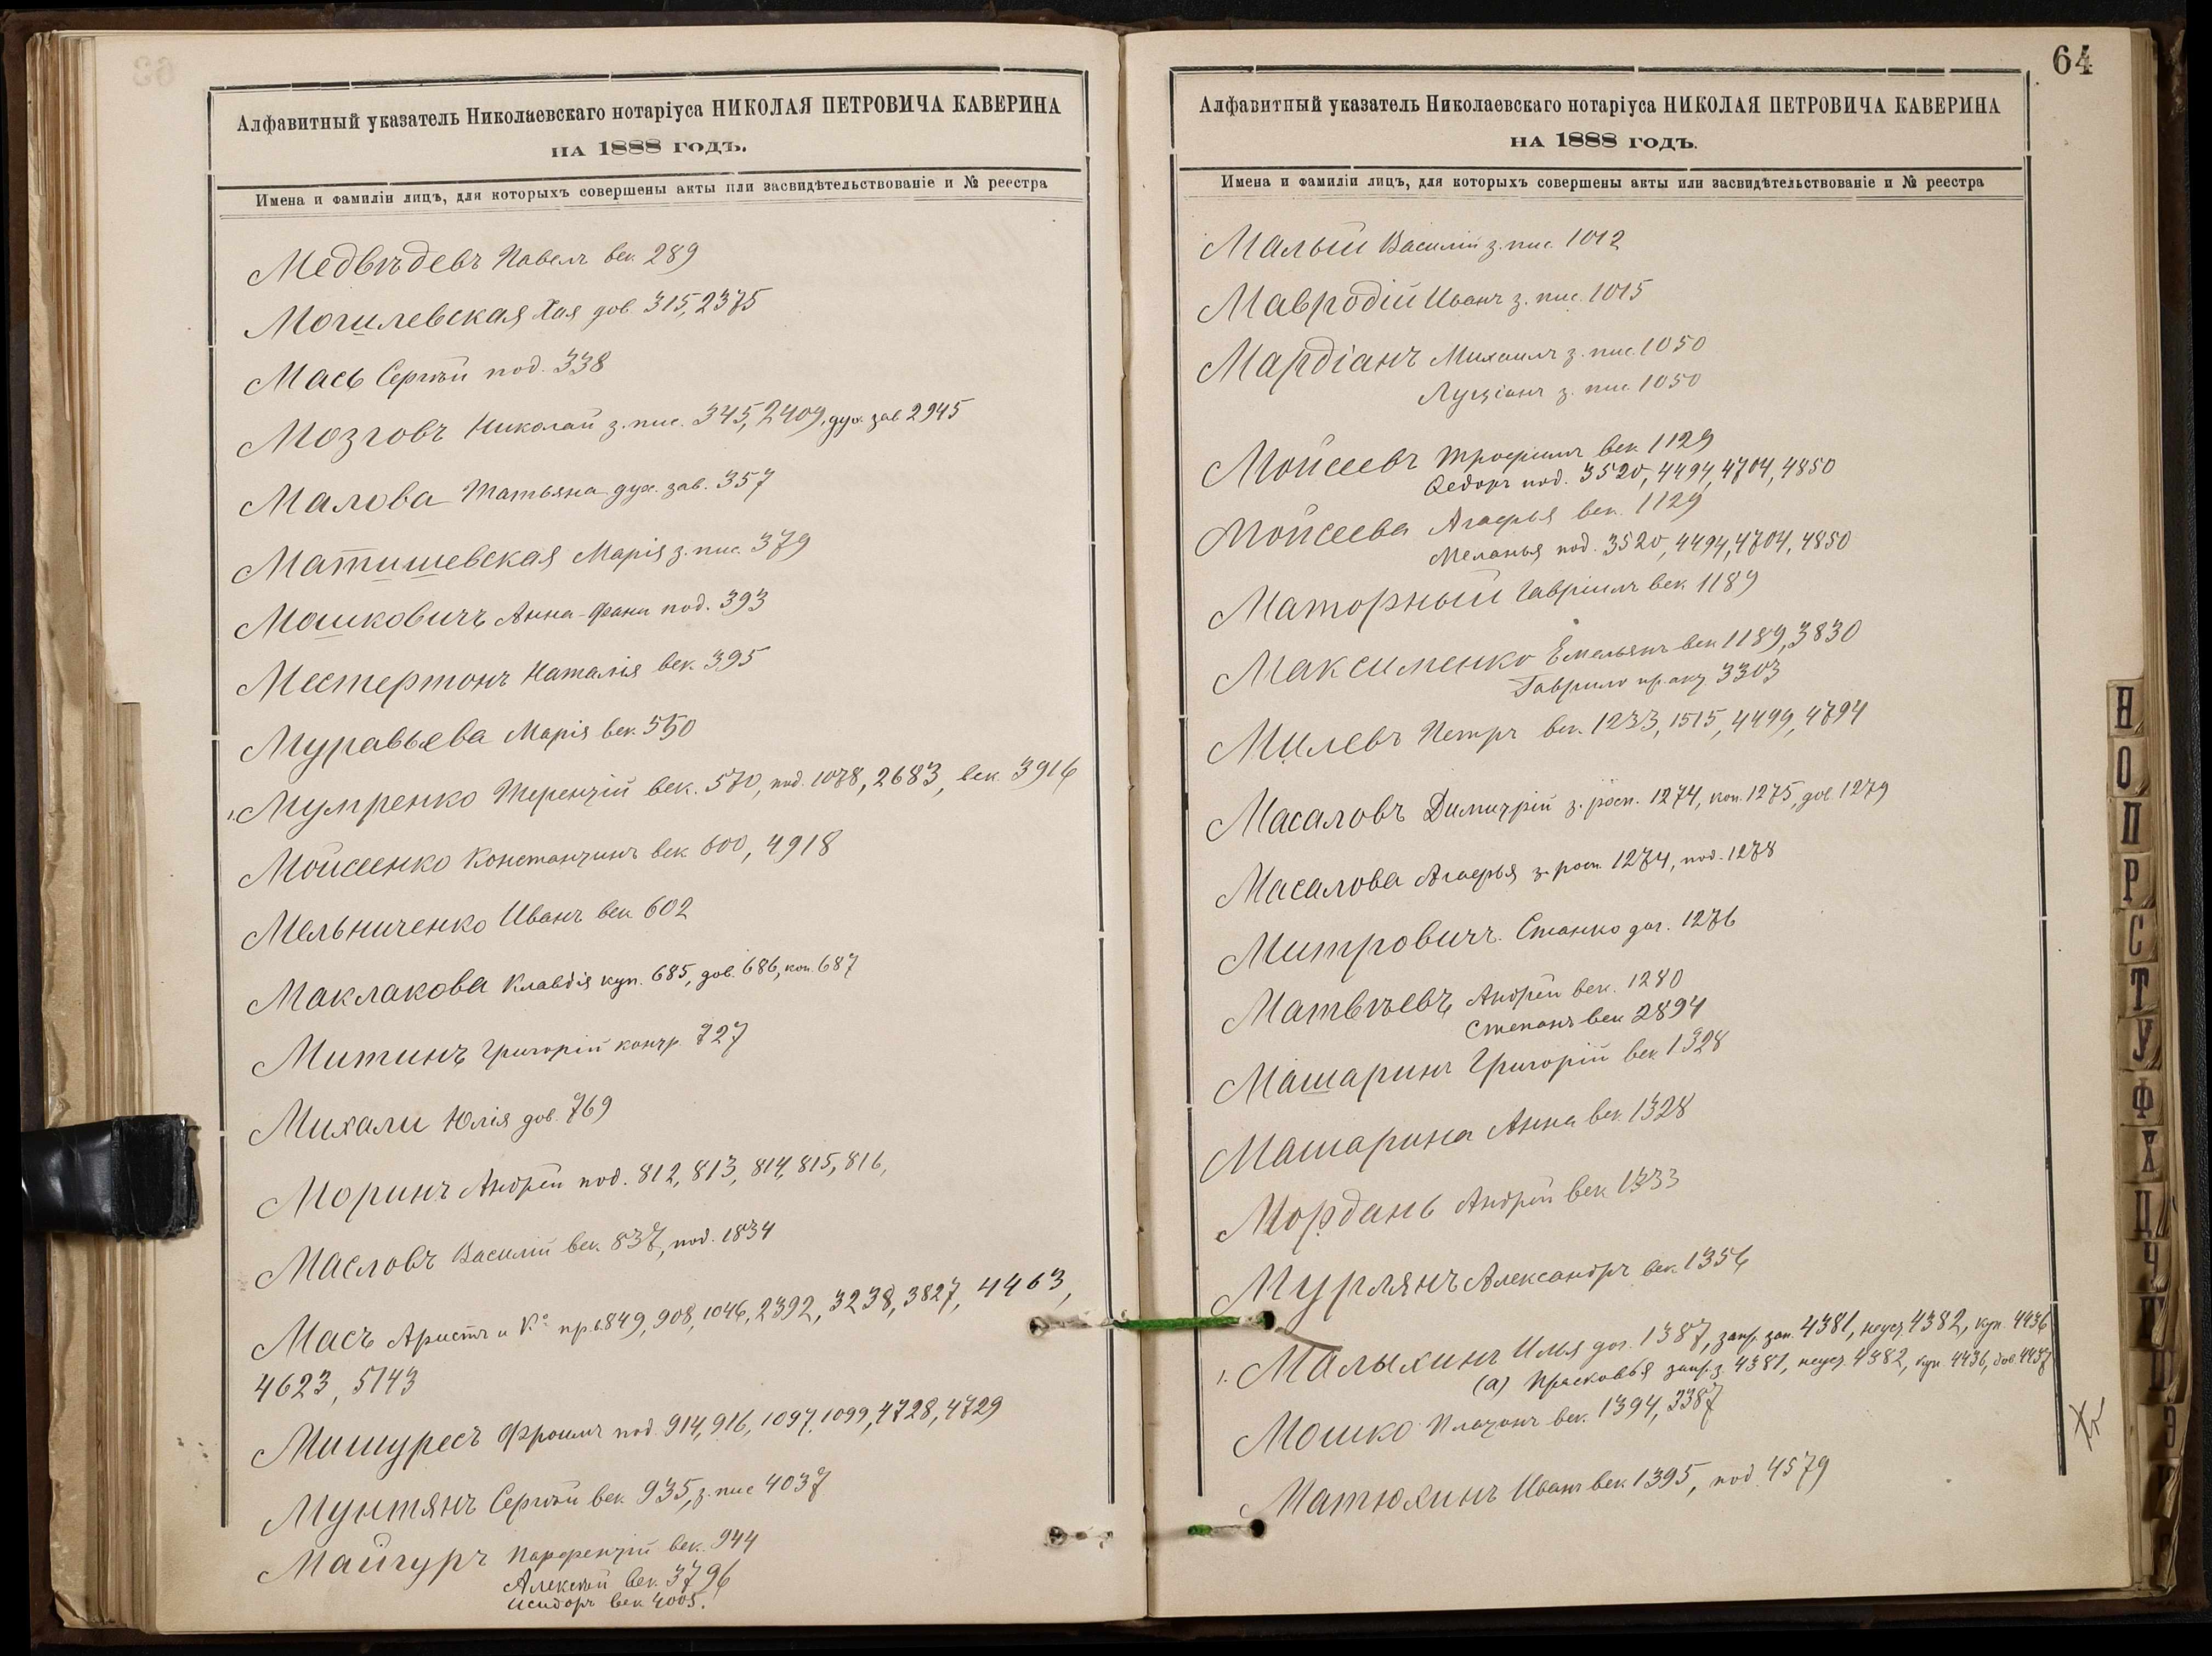 Алфавитный указатель Николаевскаго нотаріуса НИКОЛАЯ ПЕТРОВИЧА КАВЕРИНА
НА 1888 ГОДЪ.
Имена и фамиліи лицъ, для которыхъ совершены акты или засвидѣтельствованіе и № реестра
Медвѣдевъ Павелъ век. 289
Могилевская Хая дов. 315, 2375
Мась Сергѣй под. 338
Мозговъ Николай з. пис. 345, 2409, дух. зав 2945
Малова Татьяна дух. зав. 357
Матишевская Марія з. пис. 379
Мошковичъ Анна-Фани под. 393
Местертонъ Наталія век. 395
Муравьева Марія век. 550
Мумренко Терентій век. 570, под. 1078, 2683, век. 3916
Мойсеенко Константинъ век. 600, 4918
Мельниченко Иванъ век. 602
Маклакова Клавдія куп. 685, дов. 686, коп. 687
Митинъ Григорій контр. 727
Михали Юлія дов. 769
Моринъ Андрей под. 812, 813, 814, 815, 816,
Масловъ Василій век. 837, под. 1834
Масъ Аристъ и Ко пр. в. 849, 908, 1046, 2392, 3238, 3827, 4463,
4623, 5143
Мишуресъ Фроимъ под. 914, 916, 1097, 1099, 4728, 4729
Мунтянъ Сергѣй век. 935, з. пис 4037
Майгуръ Парфентій век. 944
Алексѣй век. 3796
Исидоръ век. 4005.
64
Алфавитный указатель Николаевскаго нотаріуса НИКОЛАЯ ПЕТРОВИЧА КАВЕРИНА
НА 1888 ГОДЪ.
Имена и фамиліи лицъ, для которыхъ совершены акты или засвидѣтельствованіе и № реестра
Малый Василій з. пис. 1012
Мавродій Иванъ з. пис. 1015
Мардіанъ Михаилъ з. пис. 1050
Луціанъ з. пис. 1050
Мойсеевъ Трофимъ век. 1129
Ѳедоръ под. 3520, 4494, 4704, 4850
Мойсеева Агафья век. 1129
Меланья под. 3520, 4494, 4704, 4850
Маторный Гавріилъ век. 1189
Максименко Емельянъ век. 1189, 3830
Гаврило пр. акц. 3303
Милевъ Петръ век. 1233, 1515, 4499, 4794
Масаловъ Димитрій з. росп. 1274, коп. 1275, дов. 1279
Масалова Агафья з. росп. 1274, под. 1278
Митровичъ Станко дог. 1276
Матвѣевъ Андрей век. 1280
Степанъ век. 2894
Машаринъ Григорій век. 1328
Машарина Анна век. 1328
Мордань Андрей век. 1333
Мурлянъ Александръ век. 1356
1. Малыхинъ Илья дог. 1387, запр. зап. 4381, неуст. 4382, куп. 4436
(а) Прасковья запр. з. 4381, неуст. 4382, куп. 4436, дов. 4437
Мошко Платонъ век. 1394, 3387
Матюхинъ Иванъ век. 1395, под. 4579
Н
О
П
Р
С
Т
У
Ф
Х
Ц
Ч
Ш
Щ
Э